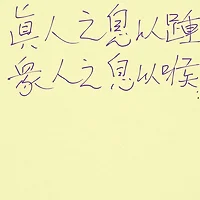 眞人之息以踵
衆人之息以喉